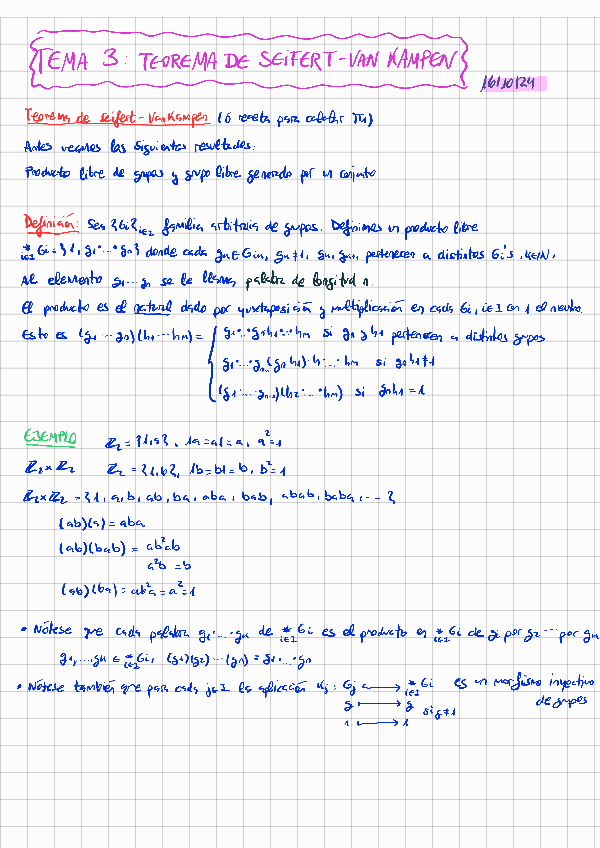 TEMA 3: TEOREMA DE SEIFERT-VAN KAMPEN
16/10/24
Teorema de seifert-Van Kampen (ó receta para calcular π1)
Antes veamos los siguientes resultados:
Producto libre de grupos y grupo libre generado por un conjunto
Definición: Sea {Gi}i∈I familia arbitraria de grupos. Definimos un producto libre
*i∈I Gi = {1, g1·...·gn} donde cada gk∈Gik, gk≠1, gk, gk+1 pertenecen a distintos Gi's, k∈N.
Al elemento g1...gn se le llama palabra de longitud n.
El producto es el natural dado por yuxtaposición y multiplicación en cada Gi, i∈I con 1 el neutro.
Esto es (g1...gn)(h1...hm) = { g1·...·gnh1·...·hm si gn y h1 pertenecen a distintos grupos
g1·...·gn-1(gnh1)·h2...·hm si gnh1≠1
(g1·...·gn-1)(h2...·hm) si gnh1=1
EJEMPLO Z2 = {1,a}, 1a=a1=a, a²=1
Z2 * Z2 Z2 = {1,b}, 1b=b1=b, b²=1
Z2*Z2 = {1, a, b, ab, ba, aba, bab, abab, baba, ...}
(ab)(a) = aba
(ab)(bab) = ab²ab
a²b = b
(ab)(ba) = ab²a = a² = 1
• Nótese que cada palabra g1·...·gn de *i∈I Gi es el producto en *i∈I Gi de g1 por g2 ... por gn
g1,...,gn ∈ *i∈I Gi, (g1)(g2)...(gn) = g1·...·gn
• Nótese también que para cada j∈I la aplicación ij: Gj ↪ *i∈I Gi es un morfismo inyectivo
g ↦ g si g≠1 de grupos
1 ↦ 1